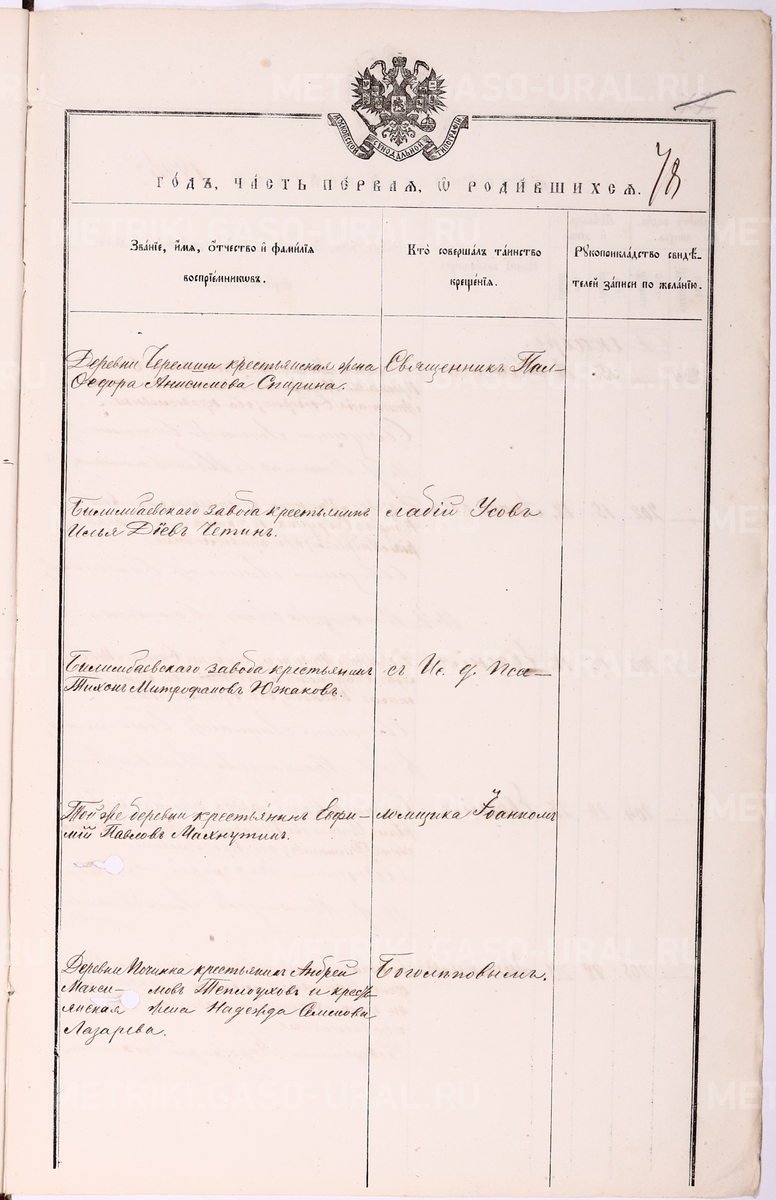 METRIKI.GASO-URAL.RU
МОСКОВСКОЙ СѴНОДАЛЬНОЙ ТИПОГРАФІИ
ГО́ДЪ, ЧА́СТЬ ПЕ́РВАЯ, Ѡ РОДИ́ВШИХСЯ.
78
Зва́нїе, и́мя, ѻ́тчество и҆ фами́лїя
воспрїе́мниковъ.
Кто̀ соверша́лъ та́инство
креще́нїя.
Рꙋкоприкла́дство свидѣ́-
телей за́писи по жела́нїю.
Деревни Черемши крестьянская жена
Ѳеодора Анисимова Спирина.
Священникъ Пал-
Билимбаевскаго завода крестьянинъ
Илья Діевъ Четинъ.
ладій Усовъ
Билимбаевскаго завода крестьянинъ
Тихонъ Митрофановъ Южаковъ.
съ И. д. Пса-
Той же деревни крестьянинъ Евфи-
мій Павловъ Махнутинъ.
ломщика Іоанномъ
Деревни Починка крестьянинъ Андрей
Макси- мовъ Теплоуховъ и кресть-
янская жена Надежда Семенова
Лазарева.
Боголѣповымъ.